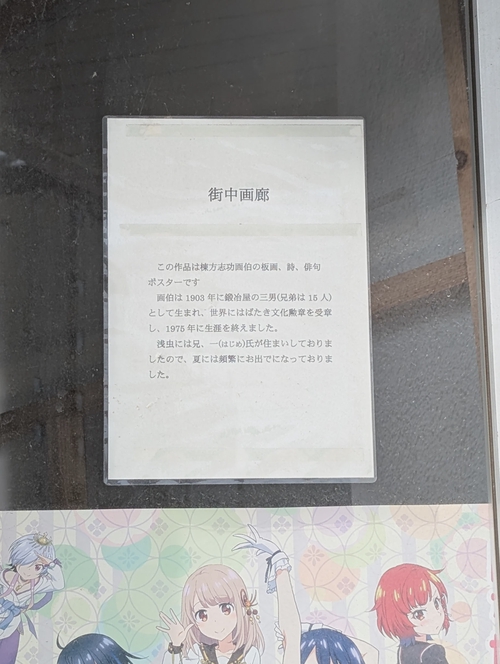 街中画廊
この作品は棟方志功画伯の板画、詩、俳句
ポスターです
画伯は 1903 年に鍛冶屋の三男(兄弟は 15 人)
として生まれ、世界にはばたき文化勲章を受章
し、1975 年に生涯を終えました。
浅虫には兄、一(はじめ)氏が住まいしておりま
したので、夏には頻繁にお出でになっておりま
した。